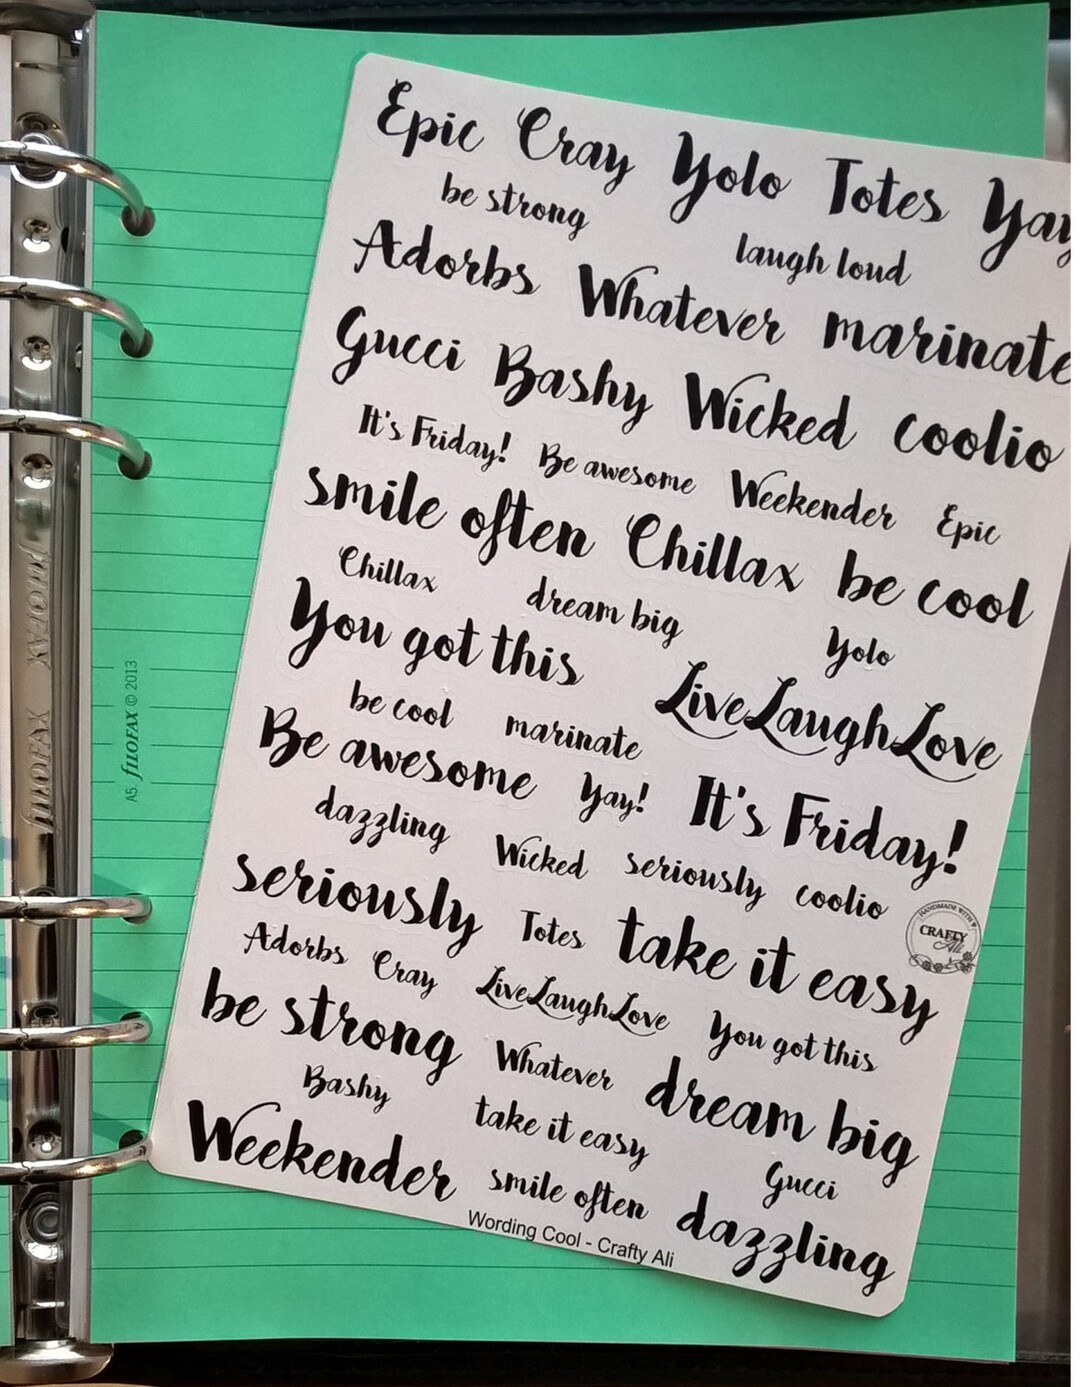 Epic Cray Yolo Totes Yay
be strong laugh loud
Adorbs Whatever marinate
Gucci Bashy Wicked coolio
It's Friday! Be awesome Weekender Epic
smile often Chillax be cool
Chillax dream big Yolo
You got this LiveLaughLove
be cool marinate
Be awesome Yay! It's Friday!
dazzling Wicked seriously coolio
seriously Totes take it easy
HANDMADE WITH
CRAFTY
Ali
Adorbs Cray LiveLaughLove You got this
be strong Whatever dream big
Bashy take it easy Gucci
Weekender smile often dazzling
Wording Cool - Crafty Ali
A5. fiLOFAX © 2013
fiLOFAX
fiLOFAX